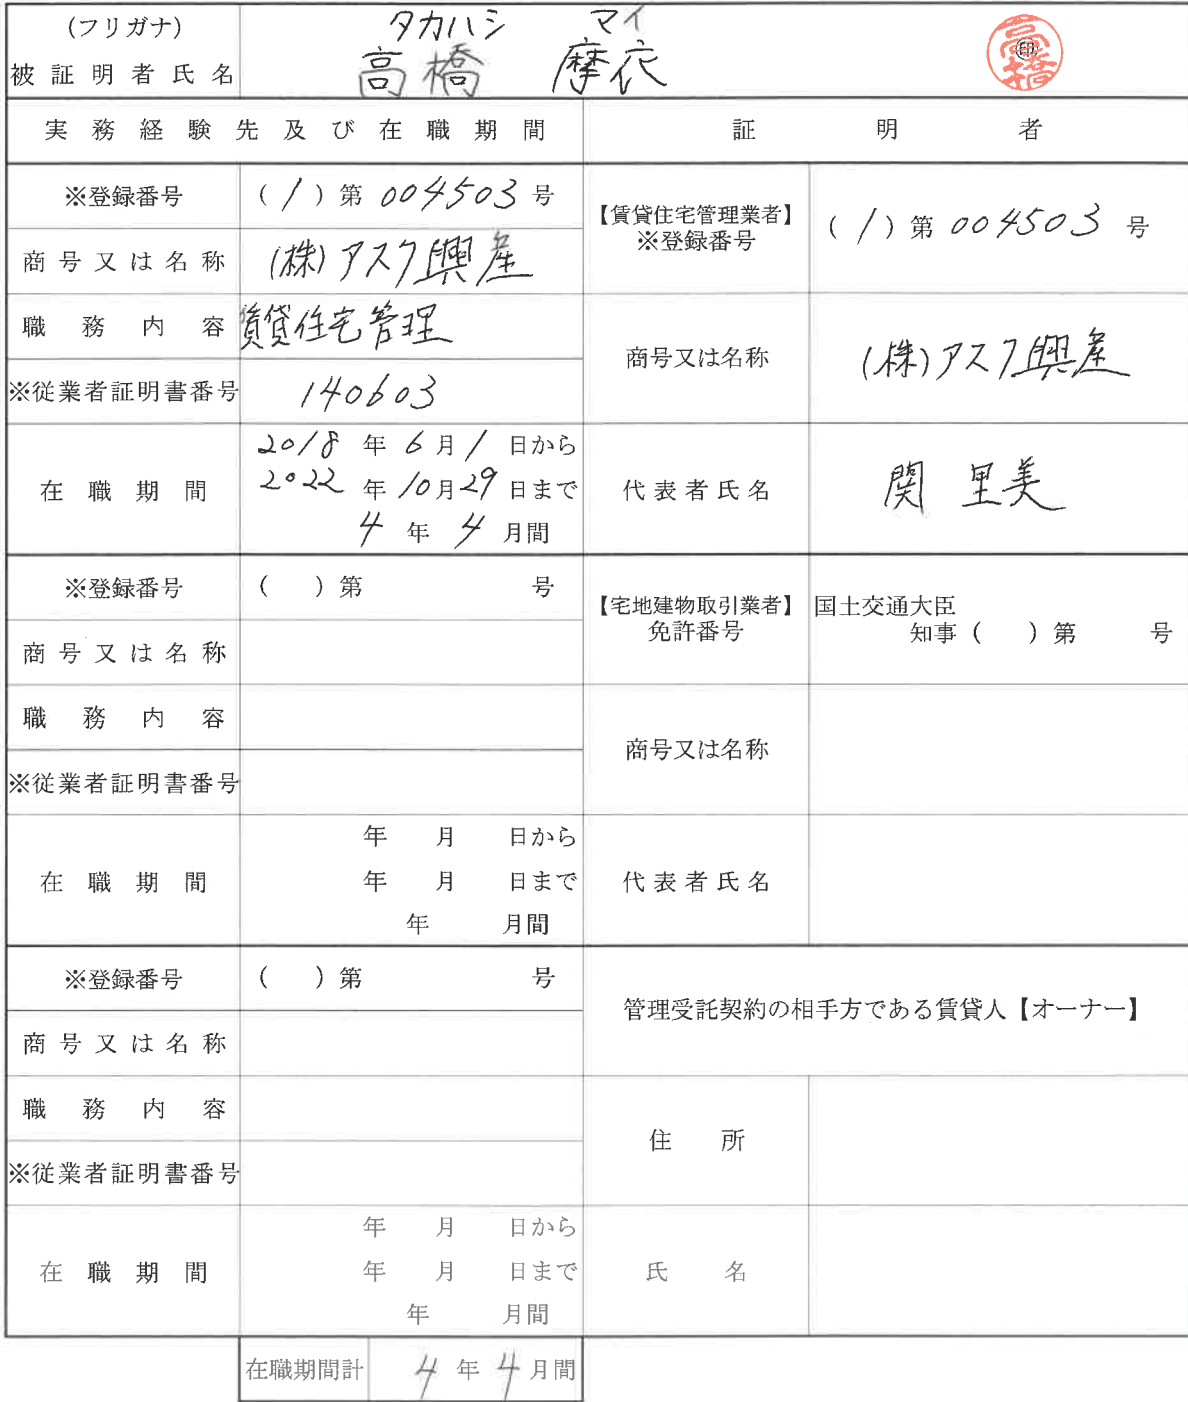 (フリガナ) タカハシ マイ
被証明者氏名 高橋 摩衣 ㊞ 高橋
実務経験先及び在職期間 証明者
※登録番号 (1)第004503号
商号又は名称 (株)アスク興産
職務内容 賃貸住宅管理
※従業者証明書番号 140603
在職期間 2018年6月1日から
2022年10月29日まで
4年4月間
【賃貸住宅管理業者】
※登録番号 (1)第004503号
商号又は名称 (株)アスク興産
代表者氏名 関 里美
※登録番号 ( )第 号
商号又は名称
職務内容
※従業者証明書番号
在職期間 年 月 日から
年 月 日まで
年 月間
【宅地建物取引業者】
免許番号
国土交通大臣
知事( )第 号
商号又は名称
代表者氏名
※登録番号 ( )第 号
商号又は名称
職務内容
※従業者証明書番号
在職期間 年 月 日から
年 月 日まで
年 月間
管理受託契約の相手方である賃貸人【オーナー】
住所
氏名
在職期間計 4年4月間